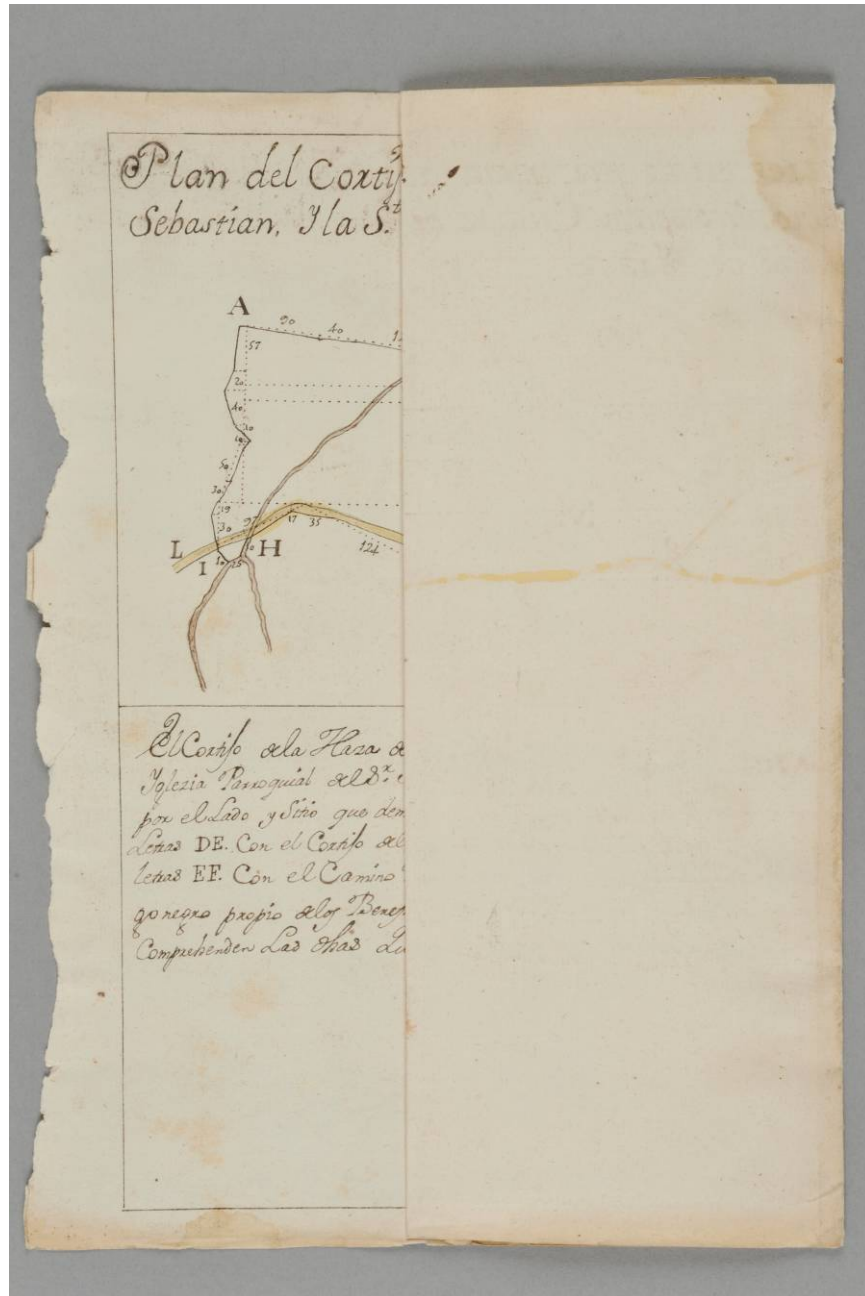 Plan del Cortij
Sebastian, Y la S.ta
A
90 40 1
57
20
40
20
10
50
30
19
30
9
17 35
124
L
I
H
10 25
El Cortijo de la Haza d
Yglezia Parroquial del Sr. S
por el Lado y Sitio que dem
Letras DE. Con el Cortijo del
letras EF. Con el Camino
go negro propio de los Benef
Comprehenden Las dhas Lu